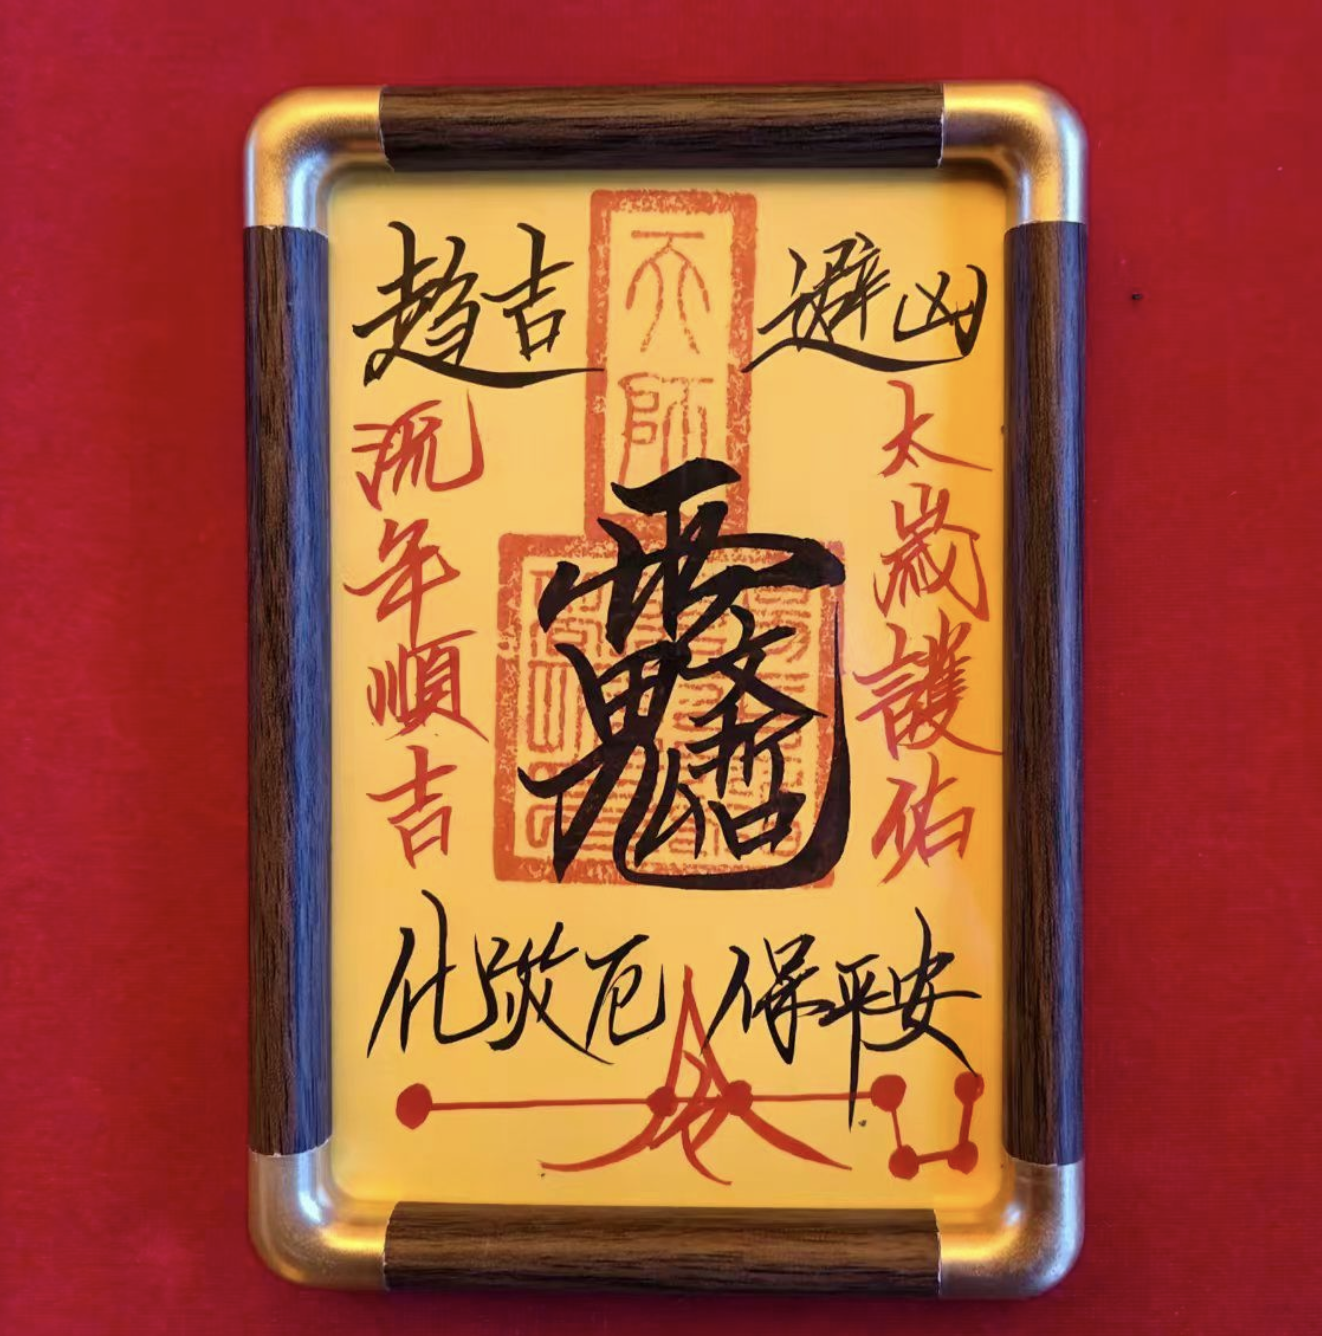 趨吉 避凶
天師
太歲護佑
流年順吉
化災厄 保平安